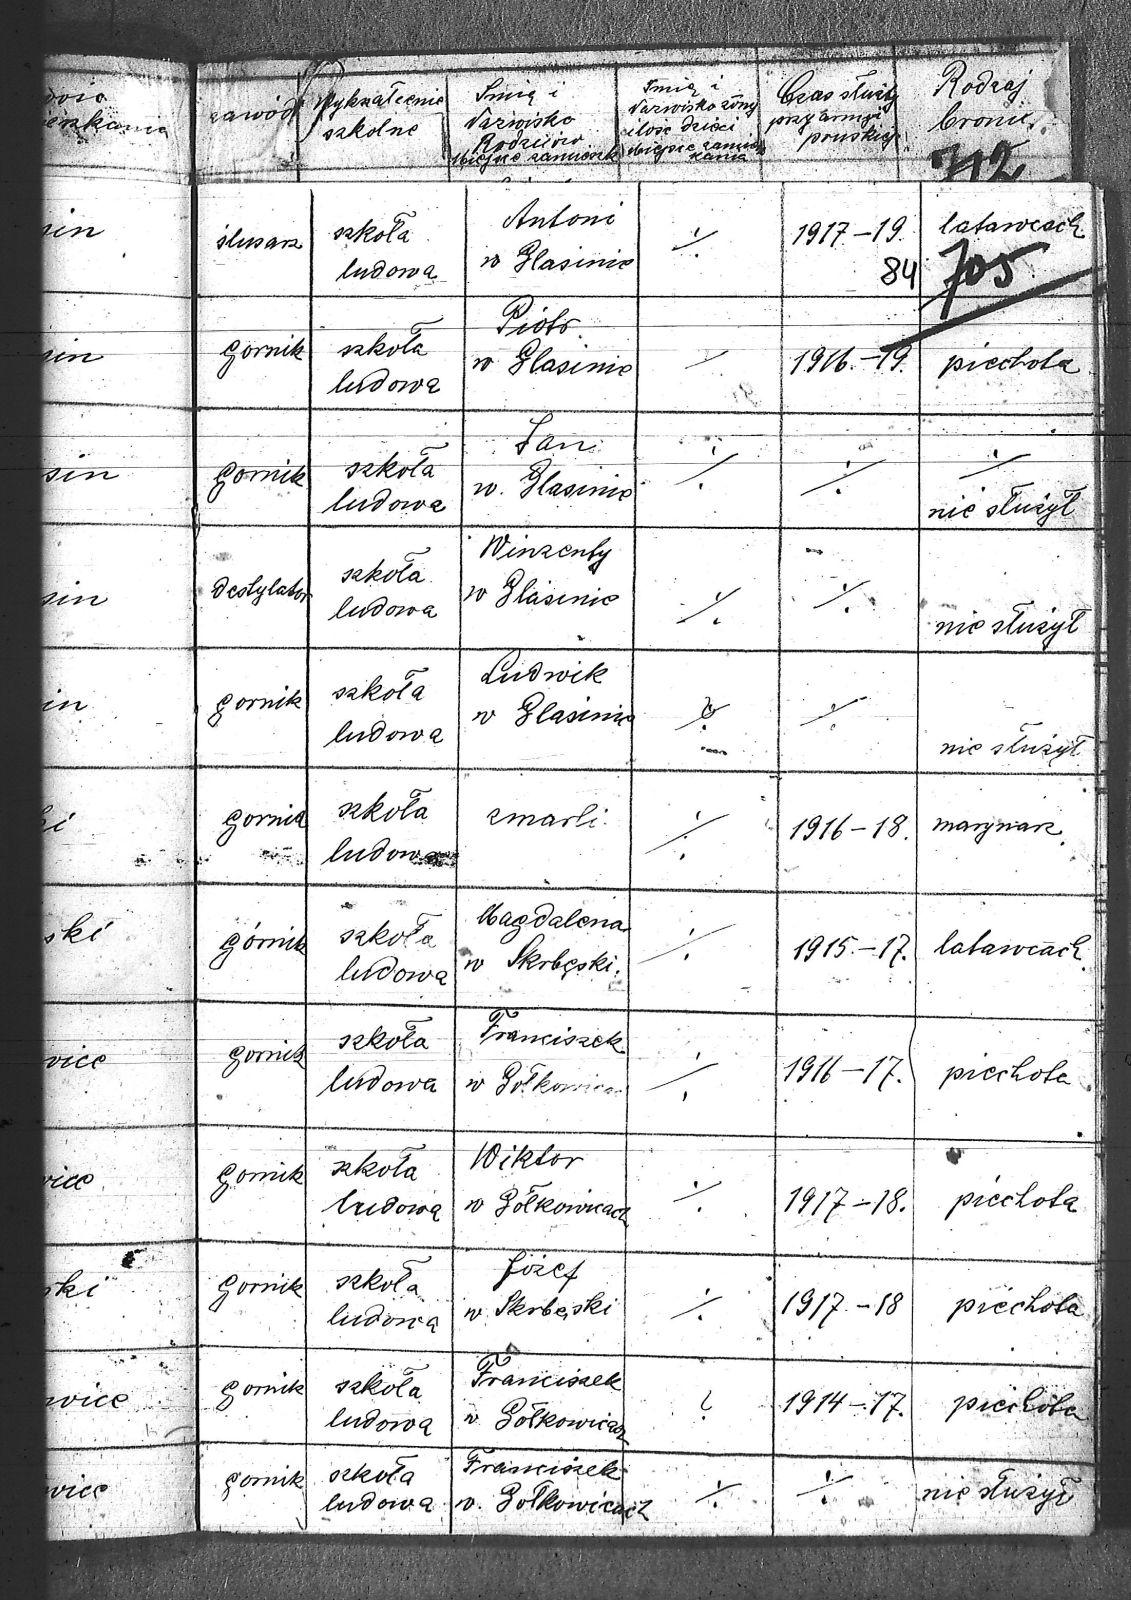 zawód
Wykształcenie
szkolne
Imię i
Nazwisko
Rodziców
Miejsce zamieszk
Imię i
Nazwisko żony
ilość dzieci
Miejsce zamiesz
kania
Czas służby
przy armji
pruskiej
Rodzaj
broni.
712
sin
ślusarz
szkoła
ludowa
Antoni
w Glasinie
·/.
1917-19.
84
latawcach
705
sin
gornik
szkoła
ludowa
Piotr
w Glasinie
1916.-19.
piechota
sin
gornik
szkoła
ludowa
Jan
w. Glasinie
·/.
·/.
·/.
nie służył
sin
destylator
szkoła
ludowa
Winzenty
w Glasinie
·/.
·/.
nie służył
in
gornik
szkoła
ludowa
Ludwik
w Glasinie
·/.
nie służył
ki
szkoła
ludowa
zmarli
·/.
1916-18.
marynarz.
ski
górnik
szkoła
ludowa
Magdalena
w Skrbęski.
·/.
1915.-17.
latawcach.
wice
gornik
szkoła
ludowa
Franciszek
w Gołkowicac
·/.
1916-17.
piechota
wice
gornik
szkoła
ludowa
Wiktor
w Gółkowicach
·/.
1917-18.
piechota
ski
gornik
szkoła
ludowa
Józef
w Skrbęski
·/.
1917.-18
piechota
wice
gornik
szkoła
ludowa
Franciszek
w Gołkowicach
1914-17.
piechota
wice
gornik
szkoła
ludowa
Franciszek
w. Gołkowicach
·/.
·/.
nie służył